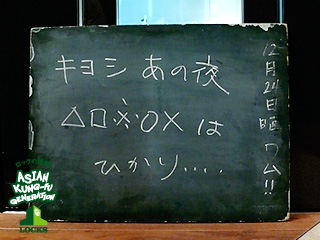 キヨシ あの夜
△□※○× は
ひかり‥‥
12月24日 ワム!!
ASIAN
KUNG-FU
GENERATION
LOCKS